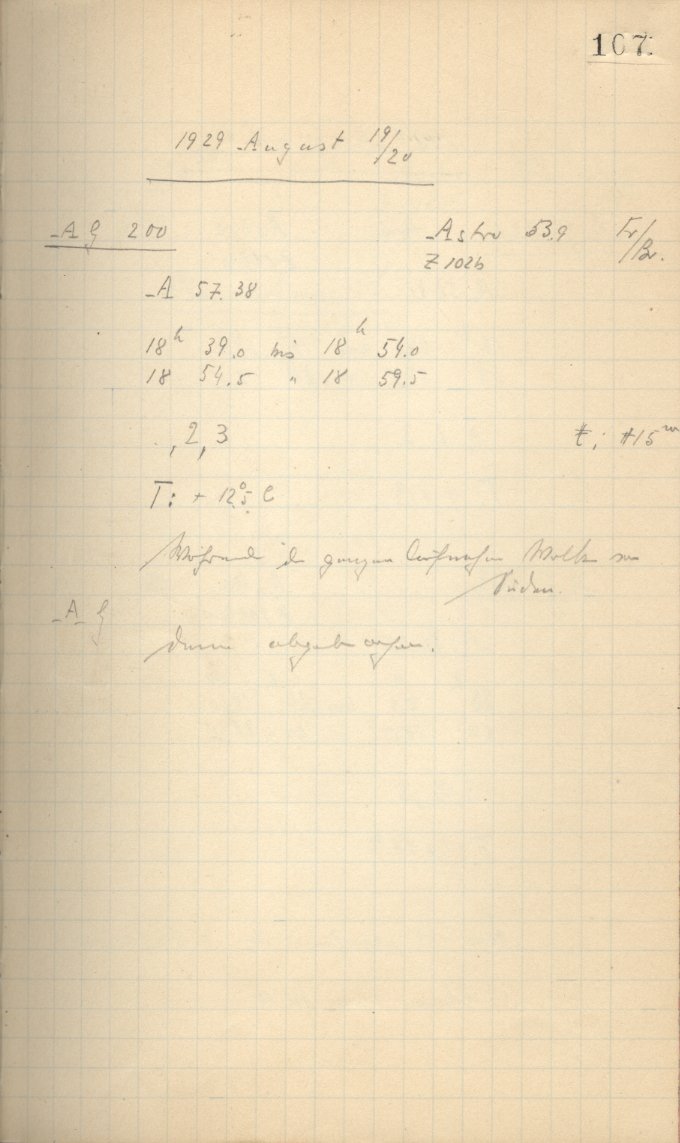 107.
1929 August 19/20
AG 200 Astro 53.9 Fr/Br.
Z 102b
A 57.38
18h 39.0 bis 18h 54.0
18 54.5 " 18 59.5
., 2, 3 t; +15m
T: + 12°.5 C
Während der ganzen Aufnahme Wolken
Süden.
AG
Dann abgebrochen.